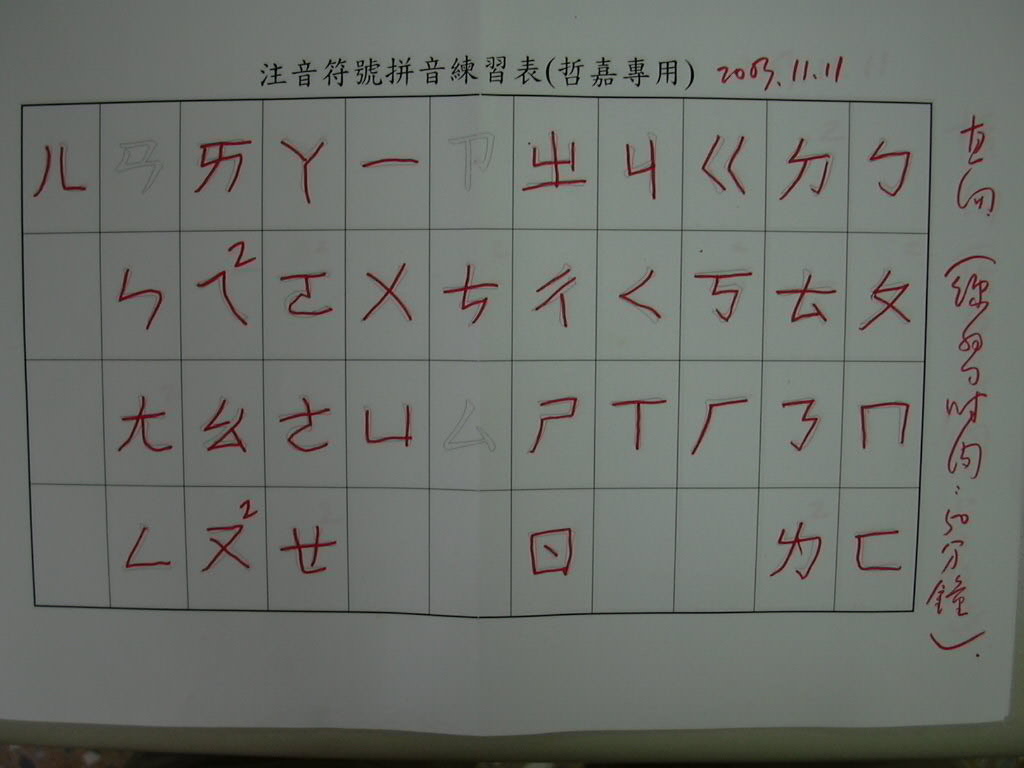 注音符號拼音練習表(哲嘉專用) 2003.11.11
直向 (練習時間:50分鐘).
ㄅ ㄆ ㄇ ㄈ
ㄉ ㄊ ㄋ ㄌ
ㄍ ㄎ ㄏ
ㄐ ㄑ ㄒ
ㄓ ㄔ ㄕ ㄖ
ㄗ ㄘ ㄙ
ㄧ ㄨ ㄩ
ㄚ ㄛ ㄜ ㄝ
ㄞ ㄟ2 ㄠ ㄡ2
ㄢ ㄣ ㄤ ㄥ
ㄦ